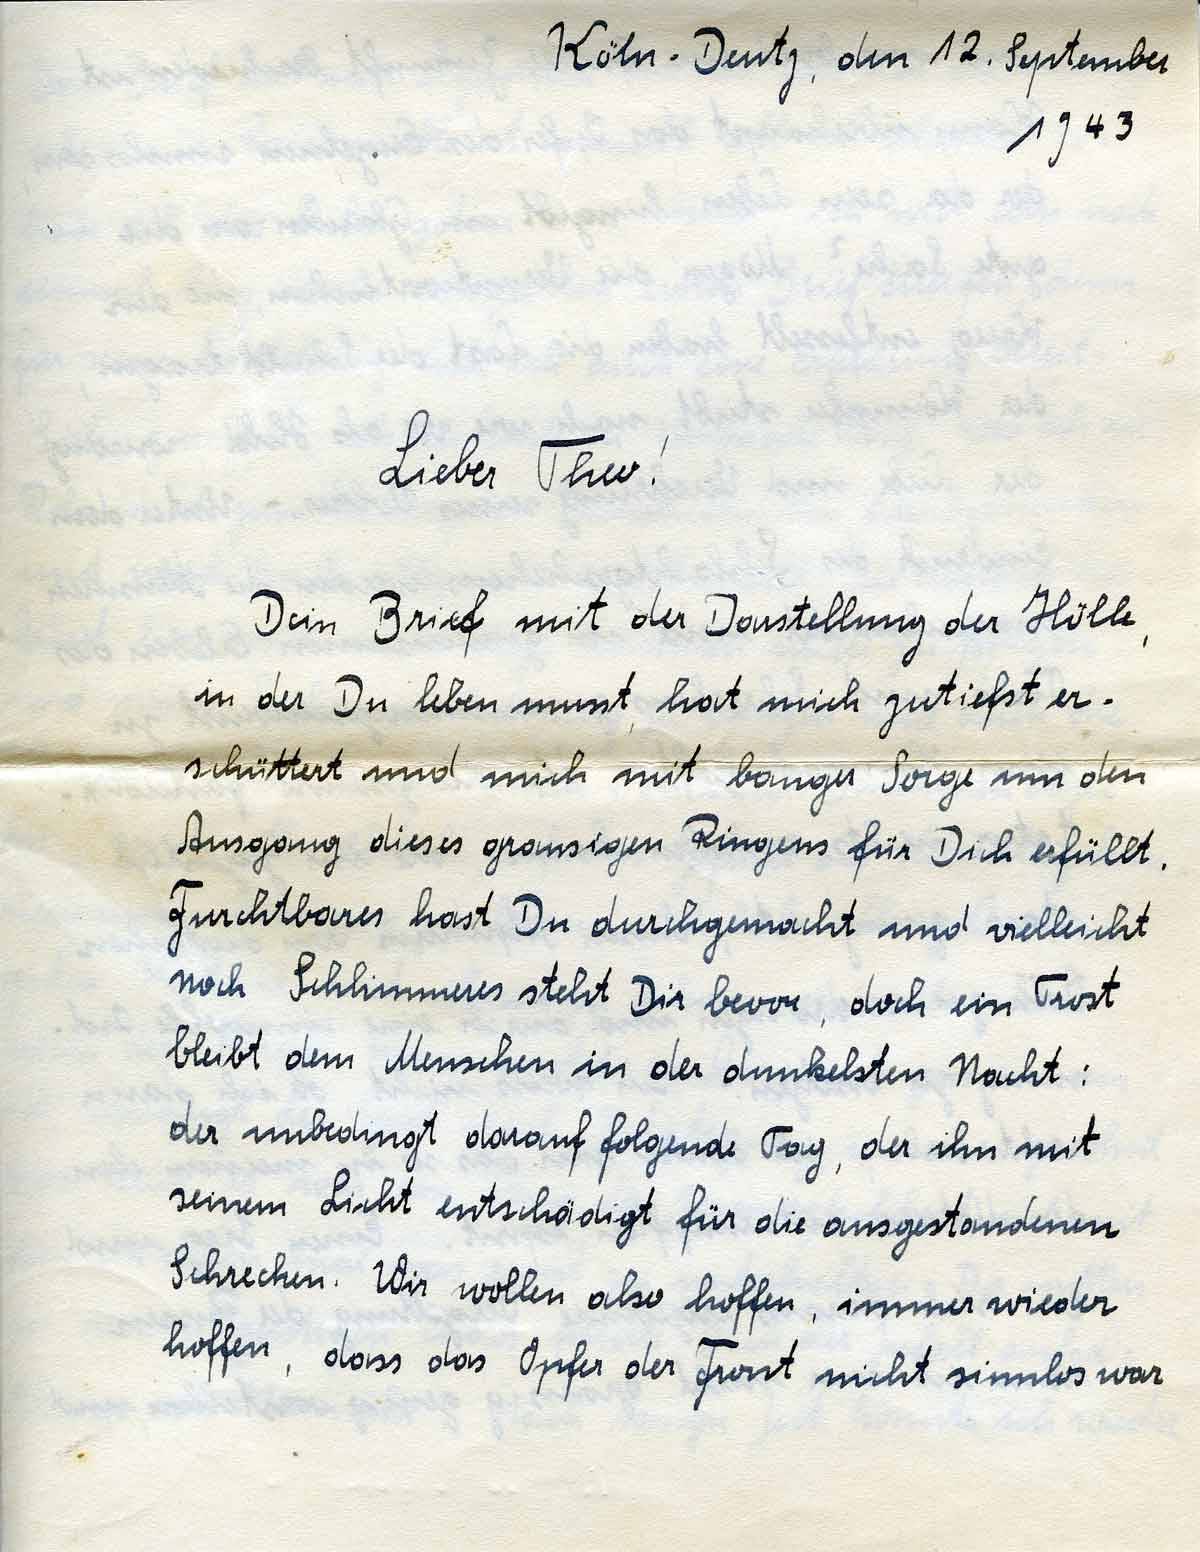 Köln-Deutz, den 12. September
1943
Lieber Theo!
Dein Brief mit der Darstellung der Hölle,
in der Du leben musst, hat mich zutiefst er-
schüttert und mich mit banger Sorge um den
Ausgang dieses grausigen Ringens für Dich erfüllt.
Furchtbares hast Du durchgemacht und vielleicht
noch Schlimmeres steht Dir bevor, doch ein Trost
bleibt dem Menschen in der dunkelsten Nacht:
der unbedingt darauf folgende Tag, der ihn mit
seinem Licht entschädigt für die ausgestandenen
Schrecken. Wir wollen also hoffen, immer wieder
hoffen, dass das Opfer der Front nicht sinnlos war